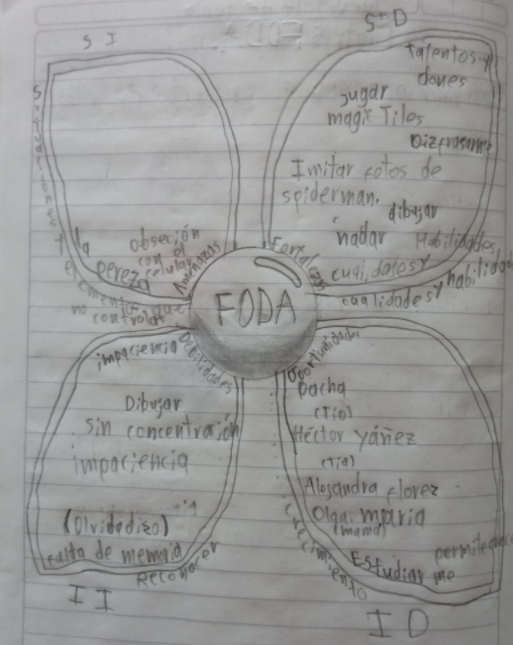 S I
S D
Talentos y
dones
Jugar
magic Tiles
Dizfrasarme
Imitar fotos de
spiderman.
dibujar
nadar
Habilidades
cualidades y
Fortalezas
cualidades y habilidad
la
pereza
obseción
con el
celular
Amenazas
elementos que
no controlas
FODA
Debilidades
impaciencia
Dibujar
sin concentración
impaciencia
(Olvidadizo)
falta de memoria
Reconocer
I I
Oportunidades
Pacha
(Tio)
Héctor Yáñez
(Tia)
Alejandra florez
Olga maria
(mamá)
Estudiar
me
crecimiento
I D